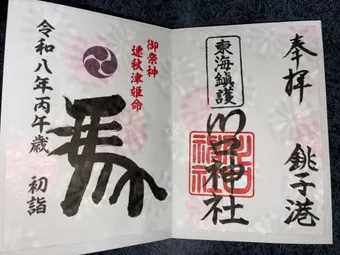 奉拝 銚子港
東海鎮護
川口神社
御祭神
速秋津姫命
馬
令和八年丙午歳 初詣